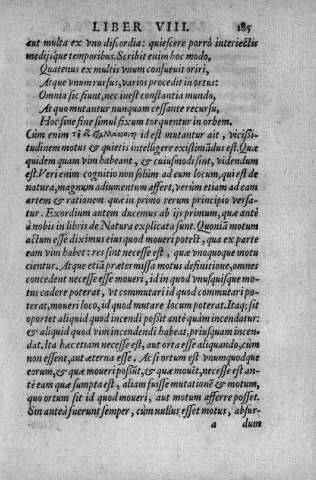 LIBER VIII. 185
aut multa ex vno discordia: quiescere porrò interiectis
medijsque temporibus. Scribit enim hoc modo,
Quatenus ex multis vnum consueuit oriri,
Atque vnum rursus, varios procedit in ortus:
Omnia sic fiunt, nec inest constantia mundo,
At quo mutantur nunquam cessante recursu,
Hoc sine fine simul fixum torquentur in orbem.
Cùm enim id est mutantur ait, vicißi-
tudinem motus & quietis intelligere existimãdus est. Quæ
quidem quam vim habeant, & cuiusmodi sint, videndum
est. Veri enim cognitio non solùm ad eum locum, qui est de
natura, magnum adiumentum affert, verùm etiam ad eam
artem & rationem quæ in primo rerum principio versa-
tur. Exordium autem ducemus ab ijs primum, quæ antè
à nobis in libris de Natura explicata sunt. Quoniã motum
actum esse diximus eius quod moueri potest, qua ex parte
eam vim habet: res sint necesse est, quæ vnoquoque motu
cientur. Atque etiã prætermissa motus definitione, omnes
concedent necesse esse moueri, id in quod vnusquisque mo-
tus cadere poterat, vt commutari id quod commutari po-
terat, moueri loco, id quod mutare locum poterat. Itaq; sit
oportet aliquid quod incendi poßit antè quàm incendatur:
& aliquid quod vim incendendi habeat, priusquam incen-
dat. Ita hæc etiam necesse est, aut orta esse aliquando, cùm
non essent, aut æterna esse. Ac si ortum est vnumquodque
eorum, & quæ moueri possũt, & quæ mouẽt, necesse est an-
tè eam quæ sumpta est, aliam fuisse mutationẽ & motum,
quo ortum sit id quod moueri, aut motum afferre posset.
Sin anteà fuerunt semper, cùm nullus esset motus, absur-
a dum